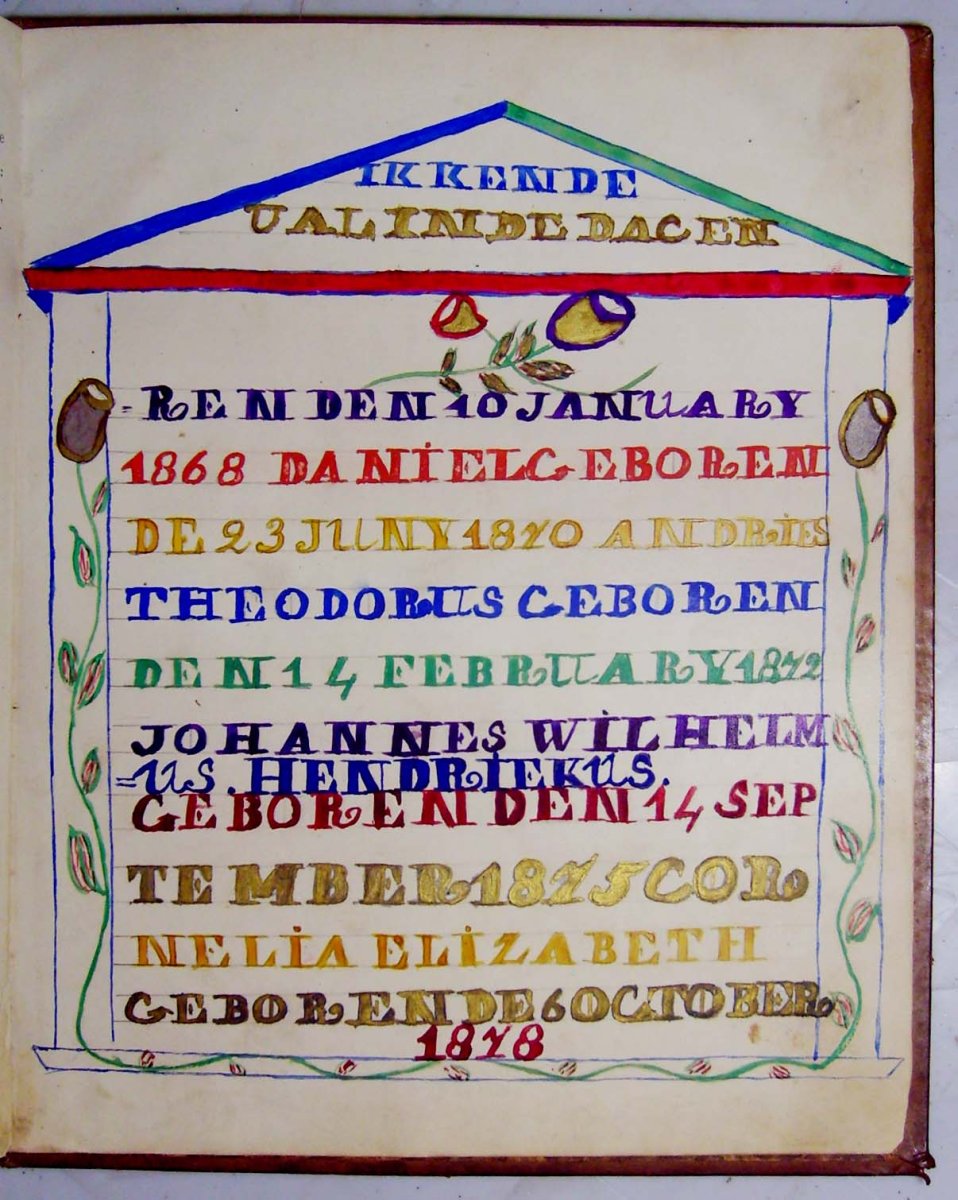 IK KENDE
U AL IN DE DAGEN
- REN DEN 10 JANUARY
1868 DANIEL GEBOREN
DE 23 JUNY 1870 ANDRIES
THEODORUS GEBOREN
DEN 14 FEBRUARY 1872
JOHANNES WILHELM
=US. HENDRIEKUS.
GEBOREN DEN 14 SEP
TEMBER 1875 COR
NELIA ELIZABETH
GEBOREN DE 6 OCTOBER
1878